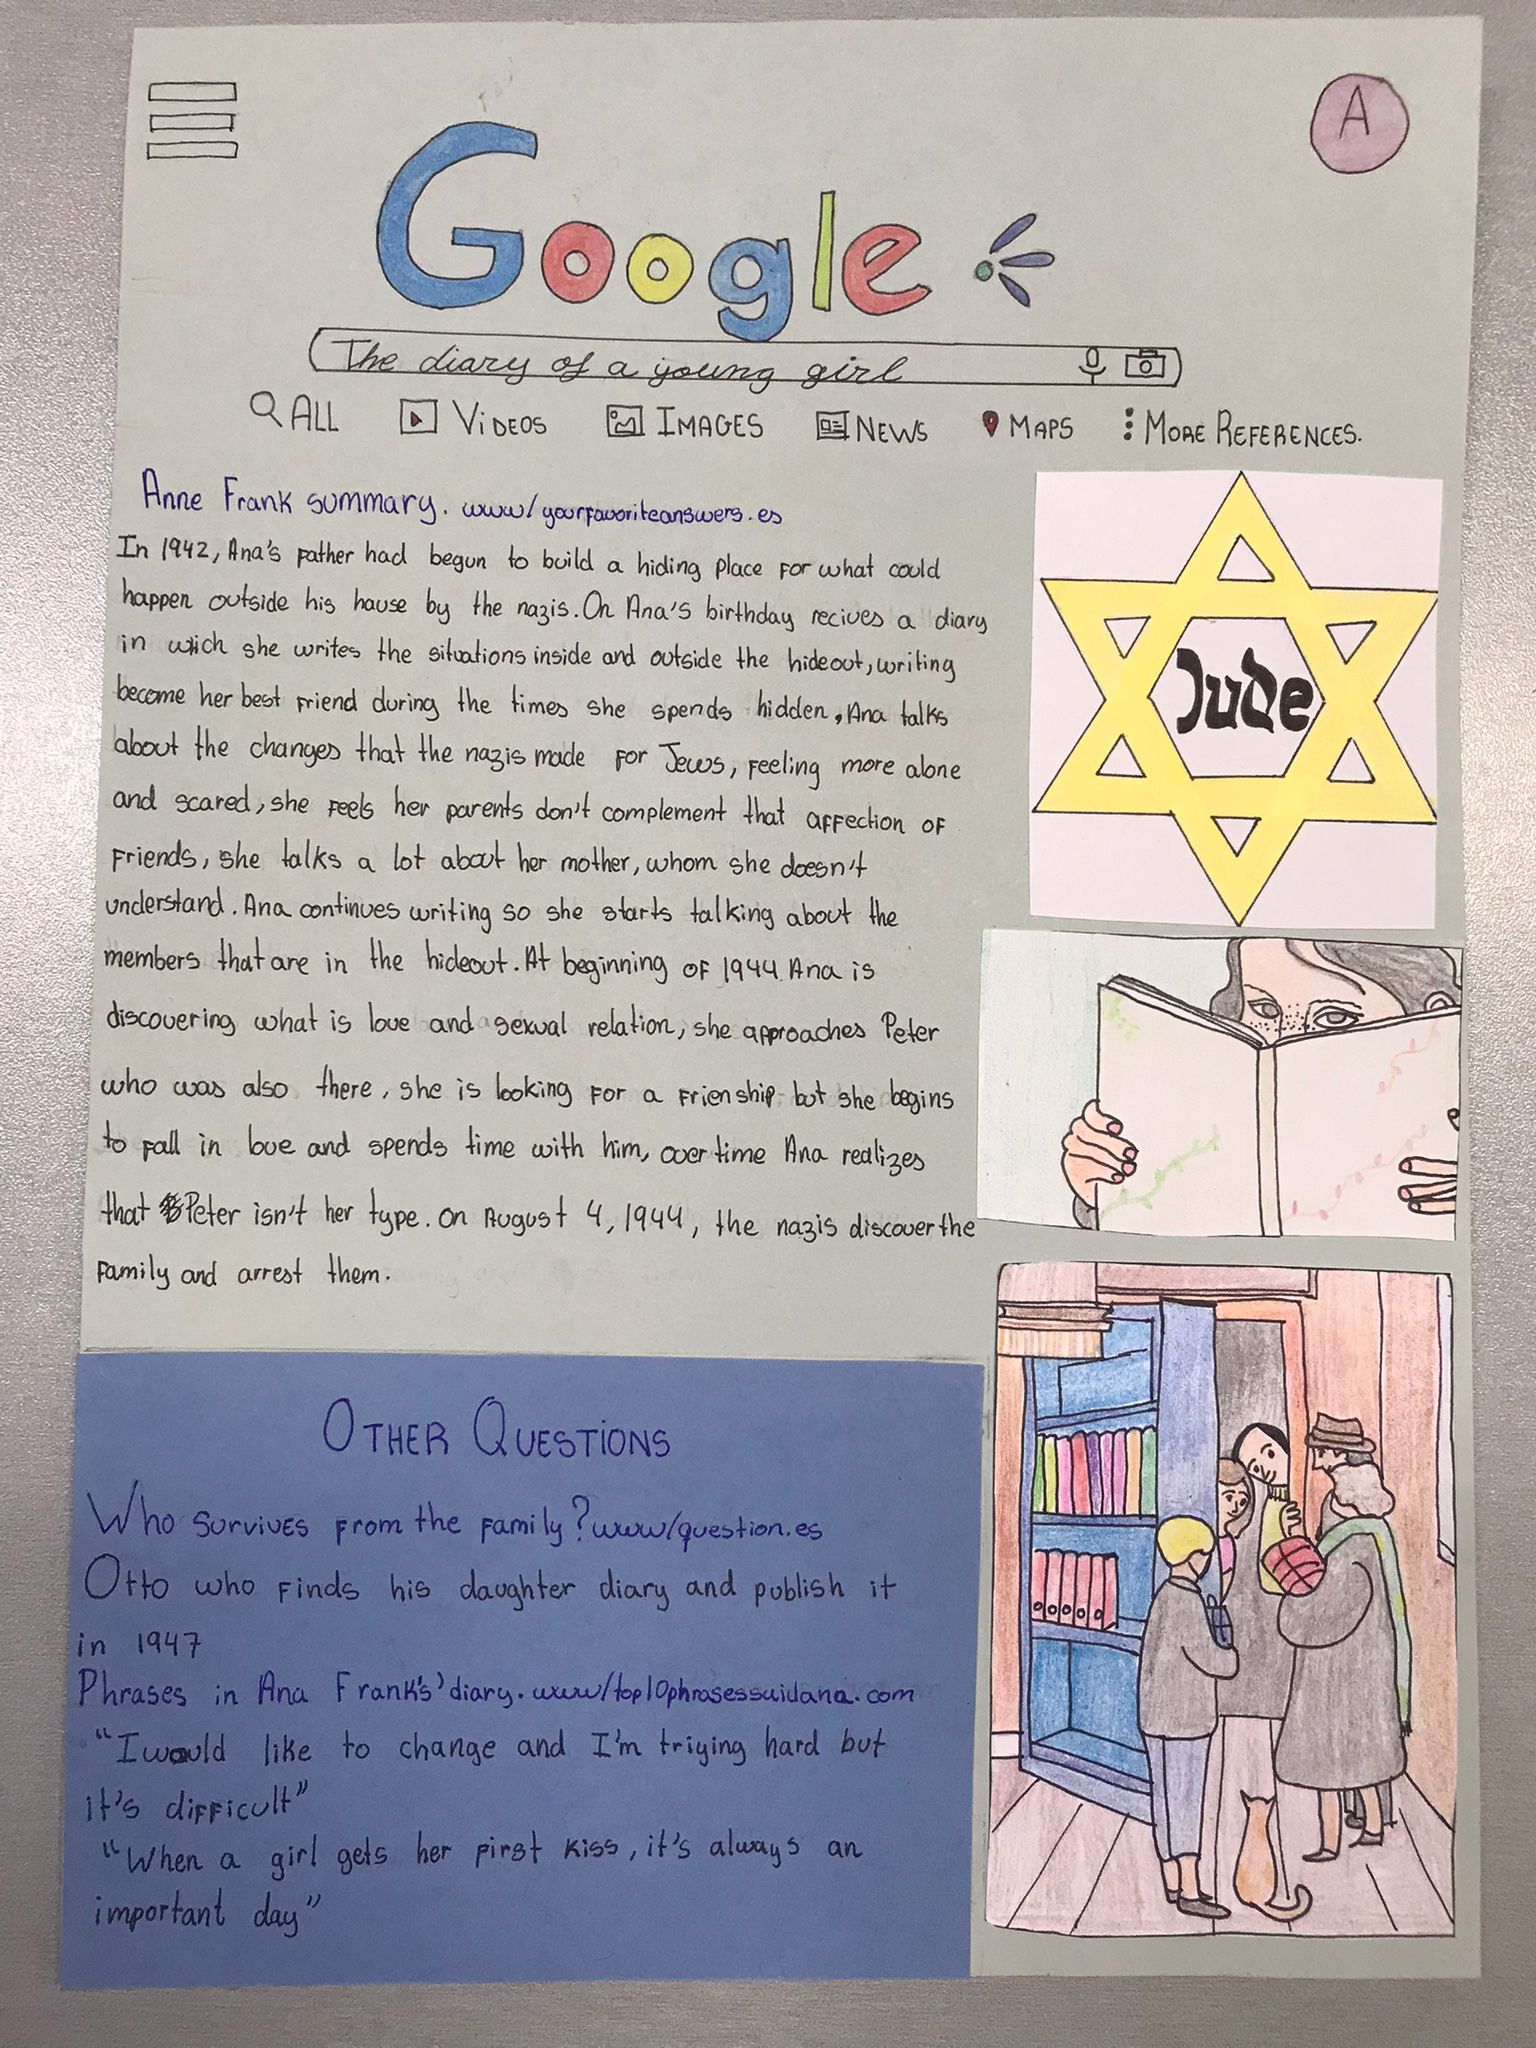 A
Google
The diary of a young girl
ALL VIDEOS IMAGES NEWS MAPS MORE REFERENCES.
Anne Frank summary. www/yourfavoriteanswers.es
In 1942, Ana's father had begun to build a hiding place for what could
happen outside his hause by the nazis. On Ana's birthday recives a diary
in wich she writes the situations inside and outside the hideout, writing
become her best friend during the times she spends hidden, Ana talks
about the changes that the nazis made for Jews, feeling more alone
and scared, she feels her parents don't complement that affection of
friends, she talks a lot about her mother, whom she doesn't
understand. Ana continues writing so she starts talking about the
members that are in the hideout. At beginning of 1944 Ana is
discovering what is love and sexual relation, she approaches Peter
who was also there, she is looking for a frienship but she begins
to fall in love and spends time with him, over time Ana realizes
that Peter isn't her type. On August 4, 1944, the nazis discover the
family and arrest them.
Jude
OTHER QUESTIONS
Who survives from the family? www/question.es
Otto who finds his daughter diary and publish it
in 1947
Phrases in Ana Frank's' diary. www/top10phrasessuidana.com
"I would like to change and I'm triying hard but
it's difficult"
"When a girl gets her first kiss, it's always an
important day"